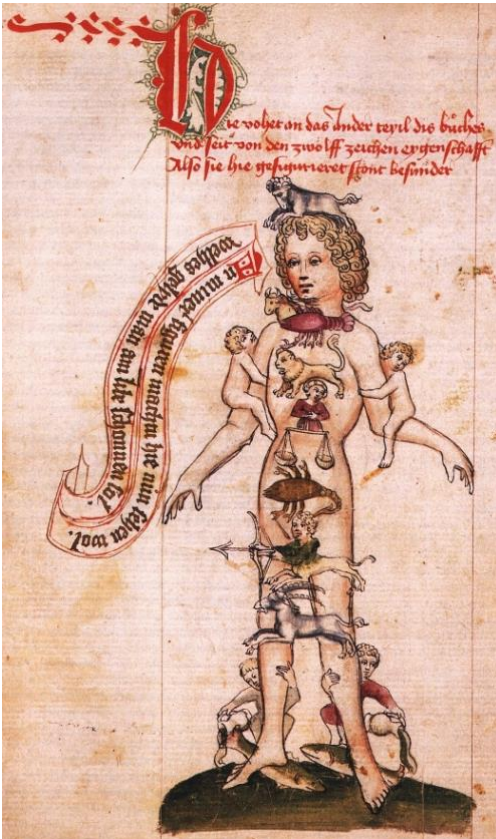 Hie vohet an das Ander teyil dis bůches
vnd seit von den zwölff zeichen eygenschafft
Also sie hie gefigurieret stont besunder
An miner figuren machtu hie nun sehen wol.
welhes gelyde man am libe schonnen sol.